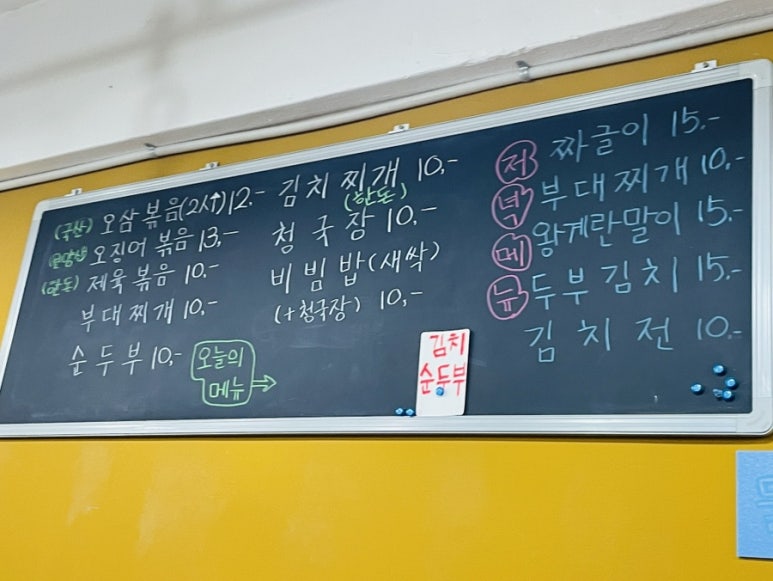 (국산) 오삼볶음(2人↑)12.-
오징어 볶음 13,-
(한돈) 제육볶음 10.-
부대찌개 10,-
순두부 10,-
오늘의
메뉴 →
김치찌개 10,-
(한돈)
청국장 10,-
비빔밥(새싹)
(+청국장) 10,-
김치
순두부
저녁메뉴
짜글이 15.-
부대찌개 10,-
왕계란말이 15,-
두부김치 15,-
김치전 10.-